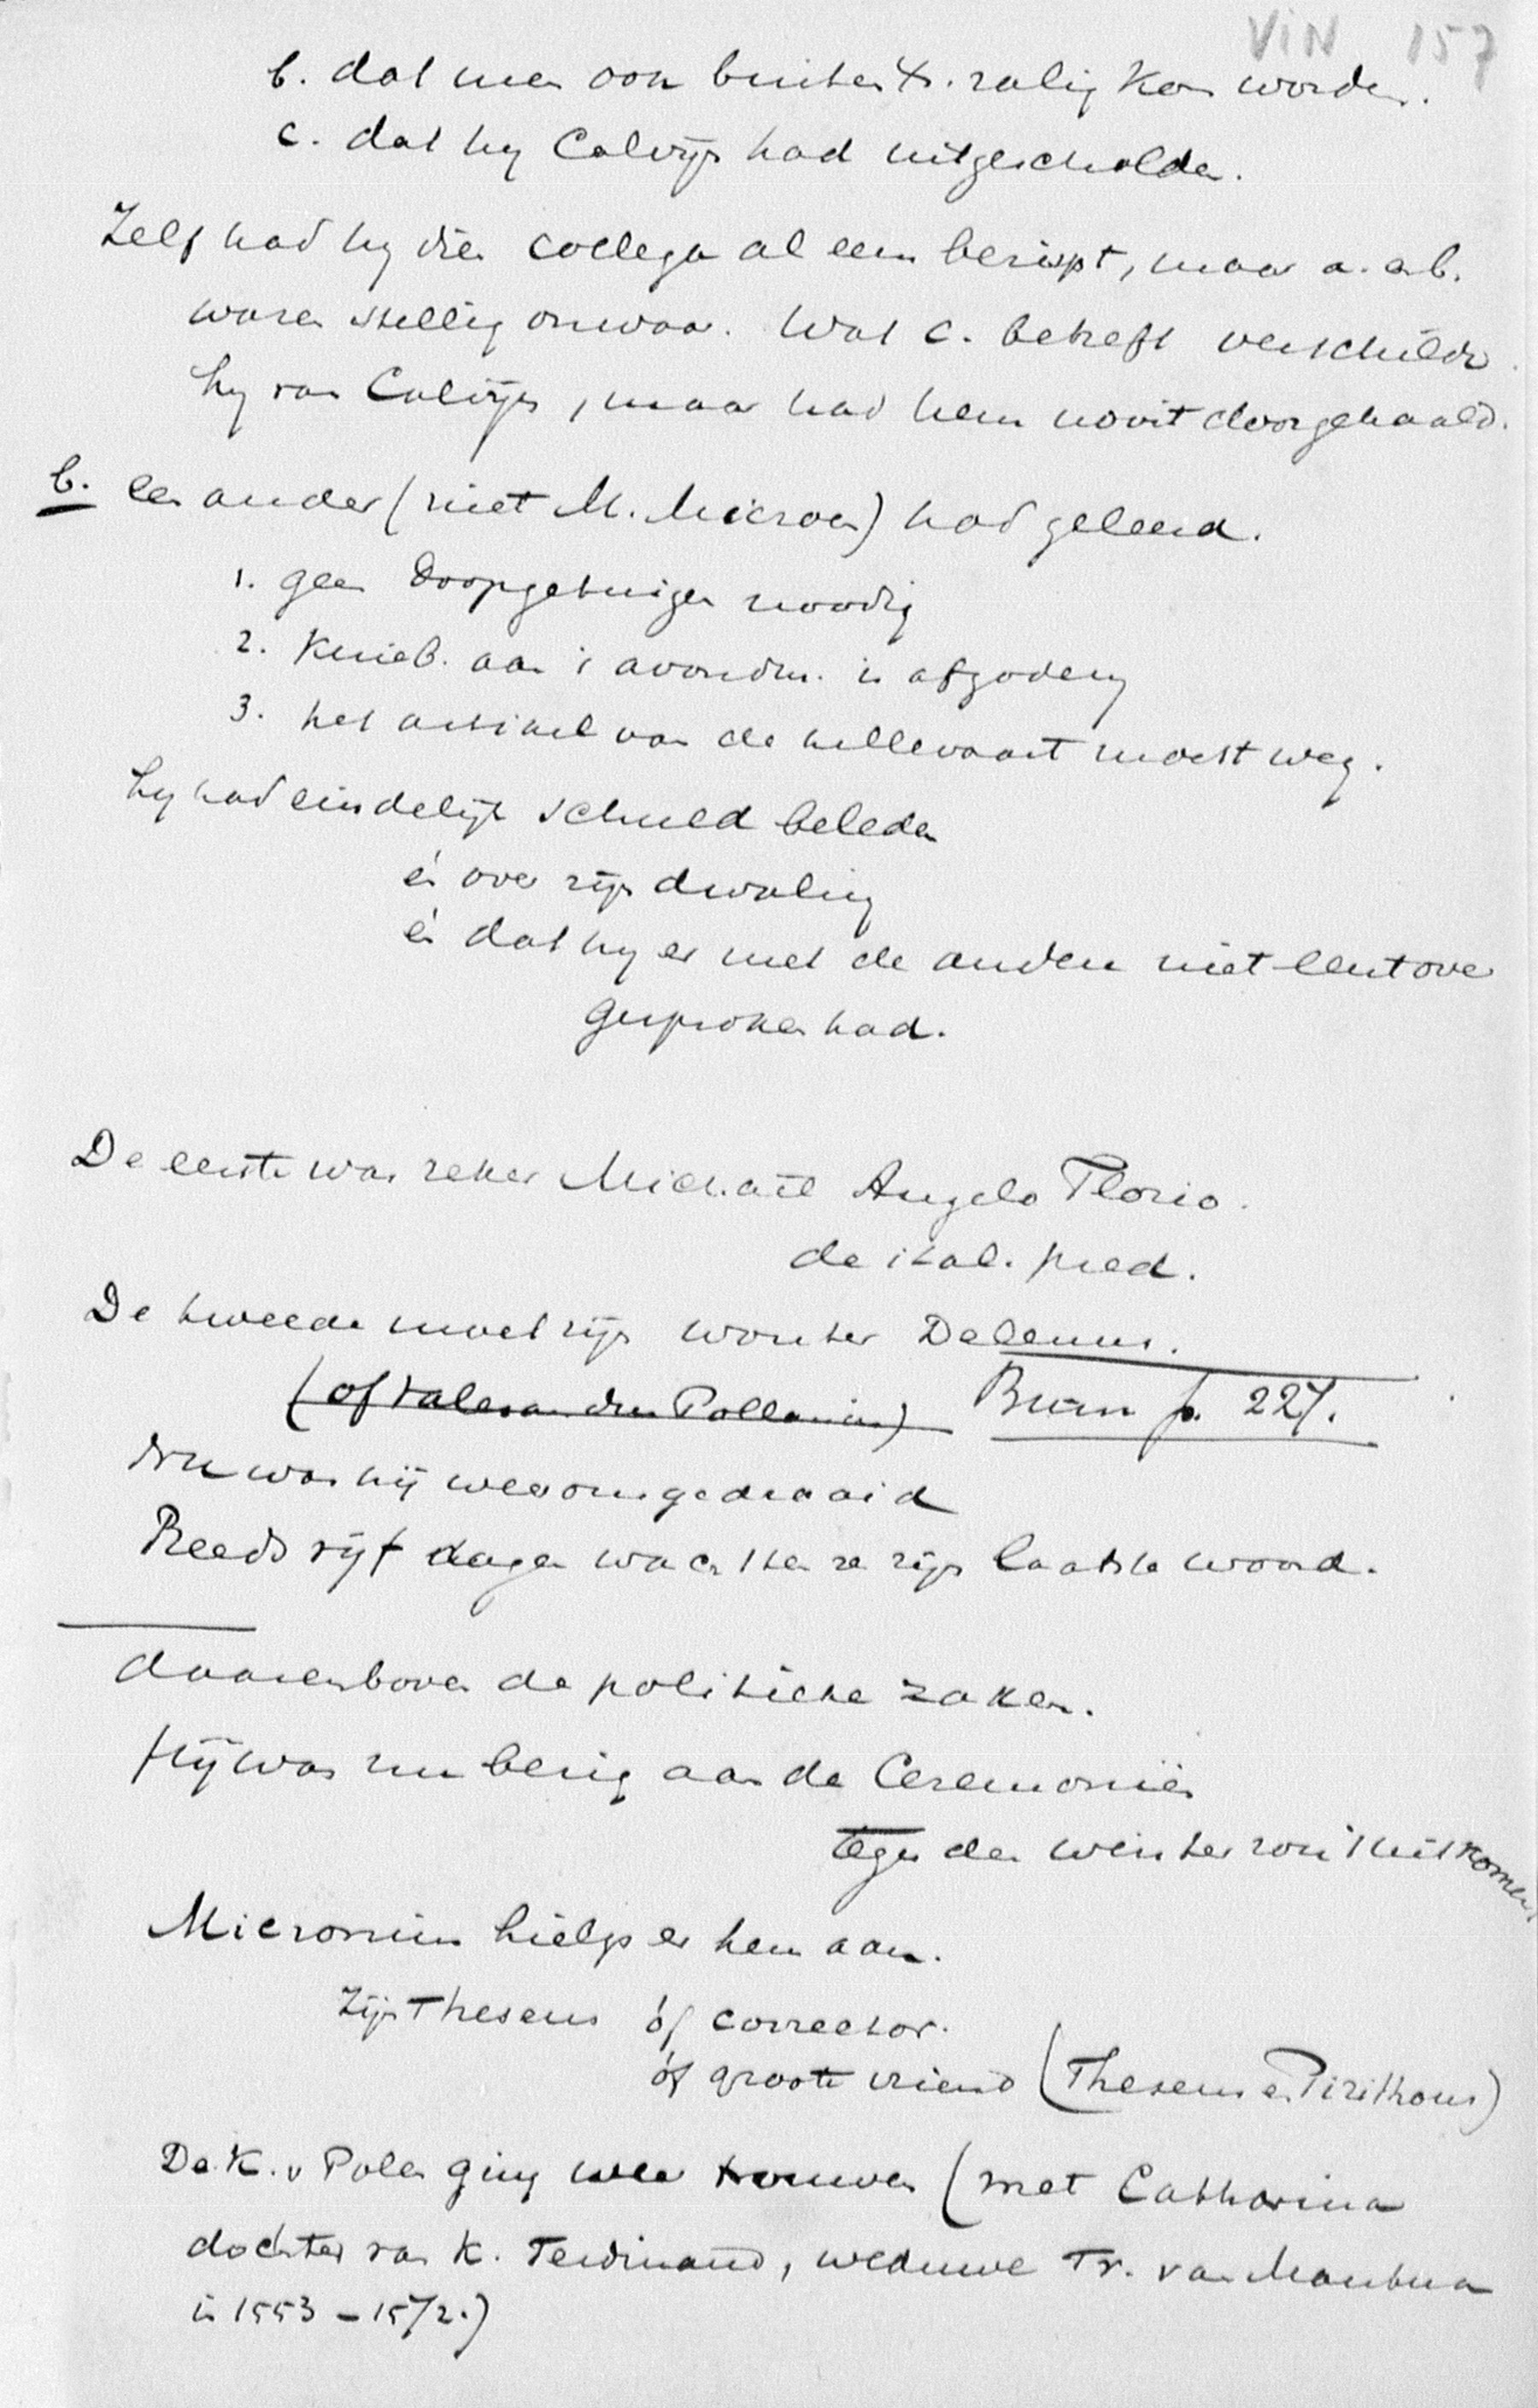 VIN 157
b. dat men ook buiten X. zalig kon worden.
c. dat hy Calvijn had uitgescholden.
Zelf had hy dien collega al eens berispt, maar a. en b.
waren stellig onwaar. Wat c. betreft verschilde
hy van Calvijn, maar had hem nooit doorgehaald.
b. een ander (niet M. Micron) had geleerd.
1. geen doopgetuigen noodig
2. Knieb. aan 't avondm. is afgodery
3. het artikel van de hellevaart moest weg.
hy had eindelijk schuld beleden
én over zijn dwaling
én dat hy er met de andere niet eerst over
gesproken had.
De eerste was zeker Michaël Angelo Florio.
de ital. pred.
De tweede moet zijn Wouter Delenus.
(of Valerandus Pollanus) Bucer p. 227.
Nu was hij weer omgedraaid
Reeds vijf dagen wachten ze zijn laatste woord.
daarenboven de politieke zaken.
Hij was nu bezig aan de Ceremoniën
tegen den winter zou 't uitkomen
Micronius hielp er hem aan.
Zijn Theseus òf corrector.
òf groote vriend (Theseus en Pirithous)
De K. v Polen ging weer trouwen (met Catharina
dochter van K. Ferdinand, weduwe Fr. van Mantua
in 1553 – 1572.)